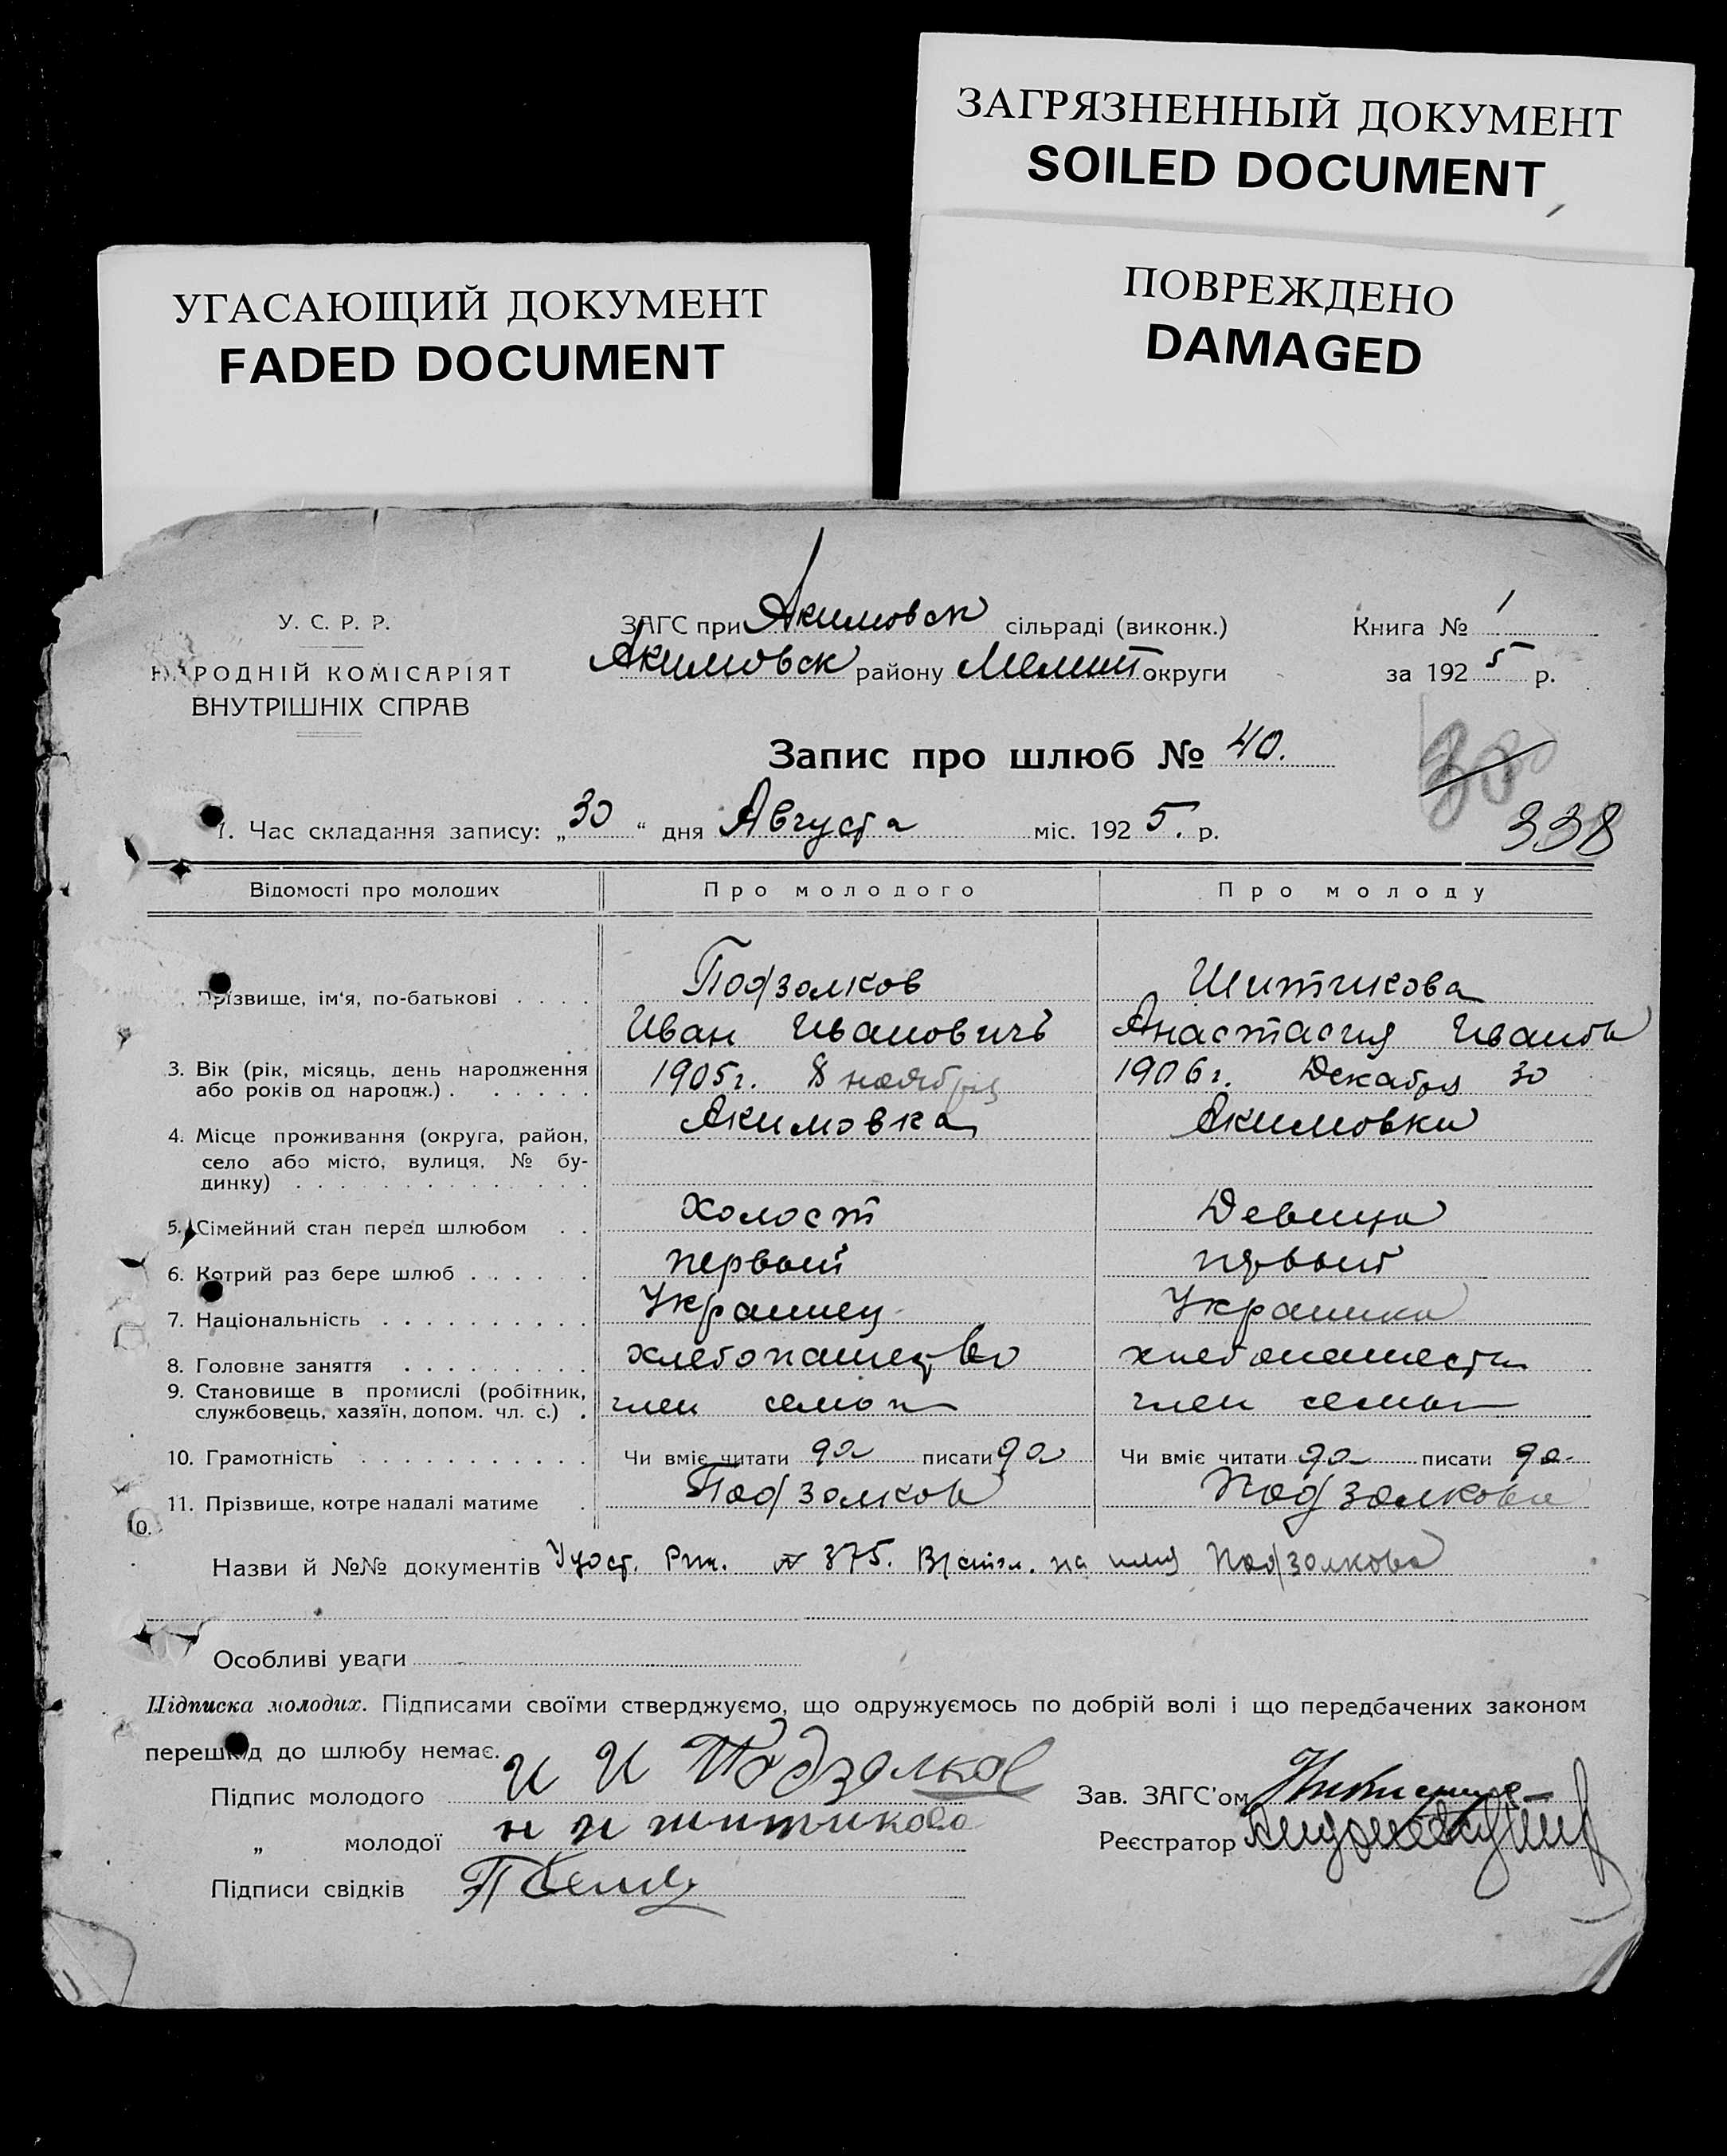 ЗАГРЯЗНЕННЫЙ ДОКУМЕНТ
SOILED DOCUMENT
УГАСАЮЩИЙ ДОКУМЕНТ
FADED DOCUMENT
ПОВРЕЖДЕНО
DAMAGED
У. С. Р. Р.
НАРОДНІЙ КОМІСАРІЯТ
ВНУТРІШНІХ СПРАВ
ЗАГС при Акимовск сільраді (виконк.)
Акимовск району Мелит округи
Книга № 1
за 1925 р.
Запис про шлюб № 40.
30
338
1. Час складання запису: „30“ дня Августа міс. 1925. р.
Відомості про молодих Про молодого Про молоду
Прізвище, ім'я, по-батькові . . . . Подзолков Шитикова
Иван Ивановичъ Анастасия Иванов
3. Вік (рік, місяць, день народження 1905г. 8 ноября 1906г. Декабря 30
або років од народж.) . . . . . .
4. Місце проживання (округа, район, Акимовка Акимовка
село або місто, вулиця, № бу-
динку) . . . . . . . . . . . . . .
5. Сімейний стан перед шлюбом . . Холост Девица
6. Котрий раз бере шлюб . . . . . . первый первый
7. Національність . . . . . . . . . . Украинец Украинка
8. Головне заняття . . . . . . . . . хлебопашество хлебопашество
9. Становище в промислі (робітник, член семьи член семьи
службовець, хазяїн, допом. чл. с.) .
10. Грамотність . . . . . . . . . . . Чи вміє читати да писати да Чи вміє читати да писати да
11. Прізвище, котре надалі матиме . Подзолков Подзолкова
10.
Назви й №№ документів Удост. Рик. № 375. на имя Подзолкова
Особливі уваги
Підписка молодих. Підписами своїми стверджуємо, що одружуємось по добрій волі і що передбачених законом
перешкод до шлюбу немає.
Підпис молодого И И Подзолков Зав. ЗАГС'ом
„ молодої н и шитикова Реєстратор
Підписи свідків